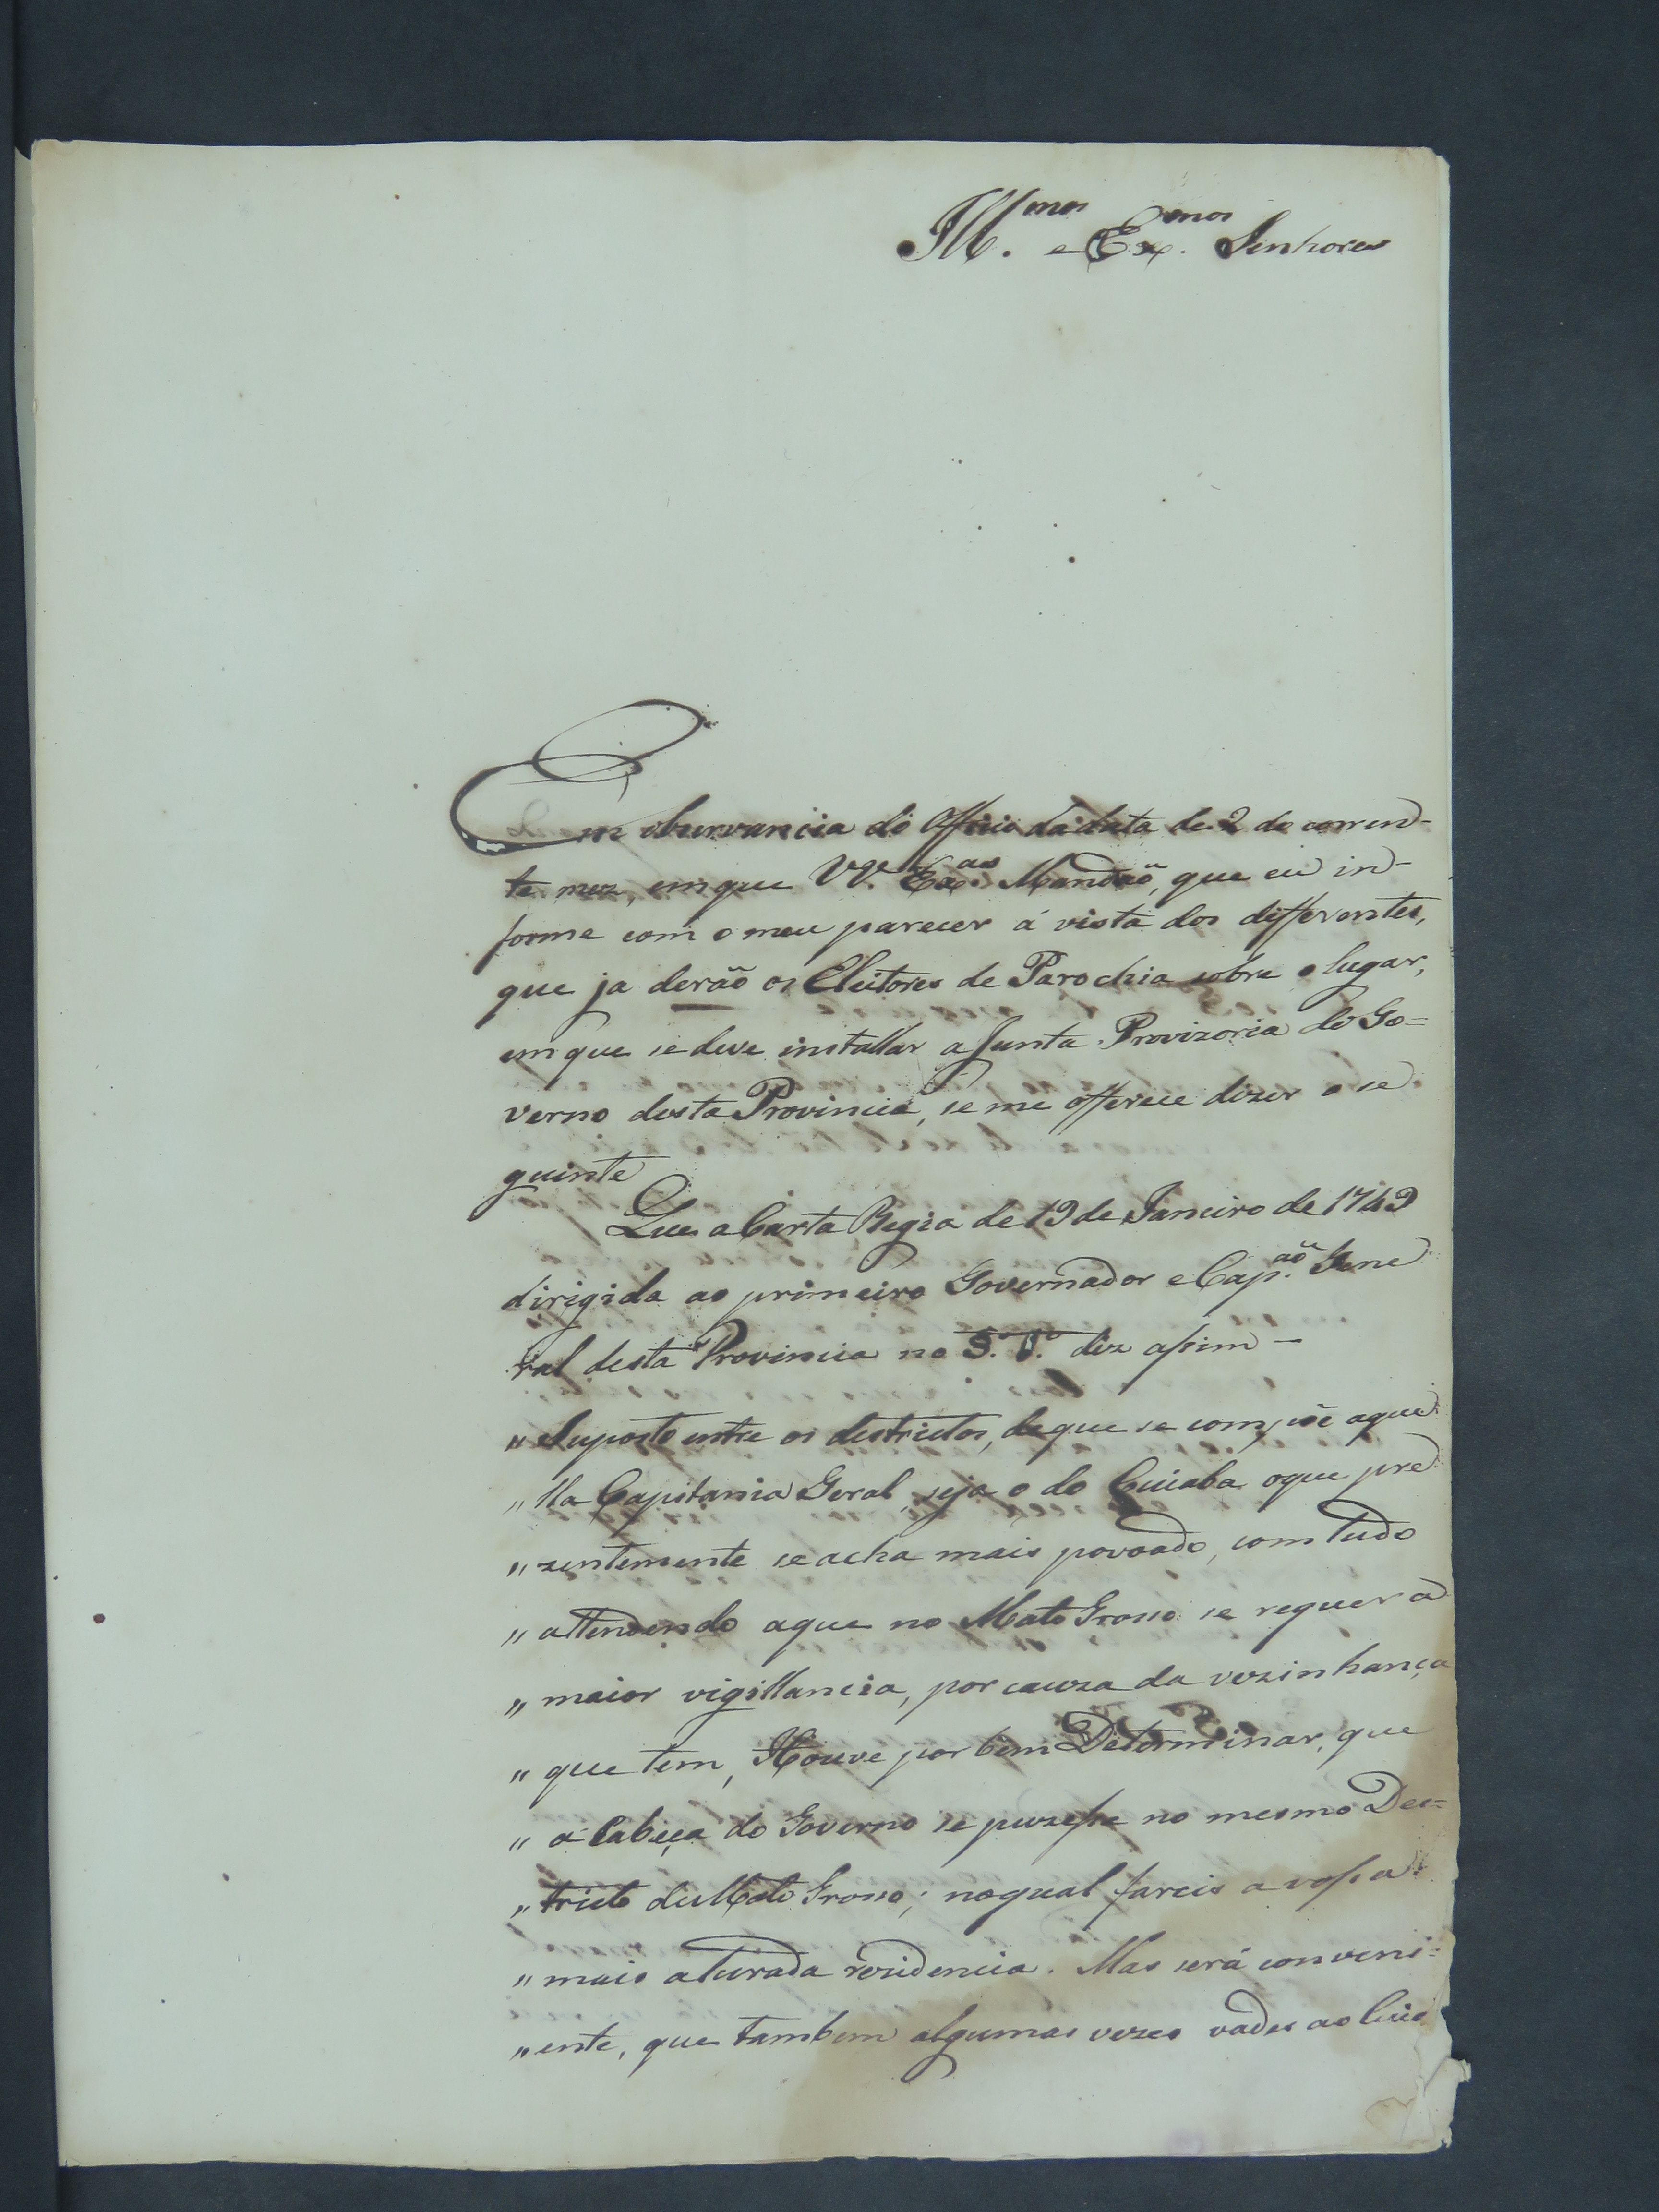 Ill.mos e Ex.mos Senhores
Em observancia do Officio da data de 2 do corren-
te mez, em que VV. Ex.as Mandaõ, que eu in-
forme com o meu parecer á vista dos differentes,
que ja deraõ os Eleitores de Parochia sobre o lugar,
em que se deve installar a Junta Provizoria do Go=
verno desta Provincia, se me offerece dizer o se
guinte
Que a Carta Regia de 19 de Janeiro de 1749
dirigida ao primeiro Governador e Cap.aõ Gene
ral desta Provincia no diz assim -
" Suposto entre os destrictos, de que se compõe aque
" lla Capitania Geral, seja o do Cuiaba o que pre
" zentemente se acha mais povoado, com tudo
" attendendo a que no Mato Grosso se requer a
" maior vigillancia, por cauza da vezinhança
" que tem, Houve por bem Determinar, que
" a Cabeça do Governo se puzesse no mesmo Des=
" tricto do Mato Grosso; no qual fareis a vossa
" mais aturada rezidencia. Mas será conveni=
" ente, que tambem algumas vezes vades ao Cuia